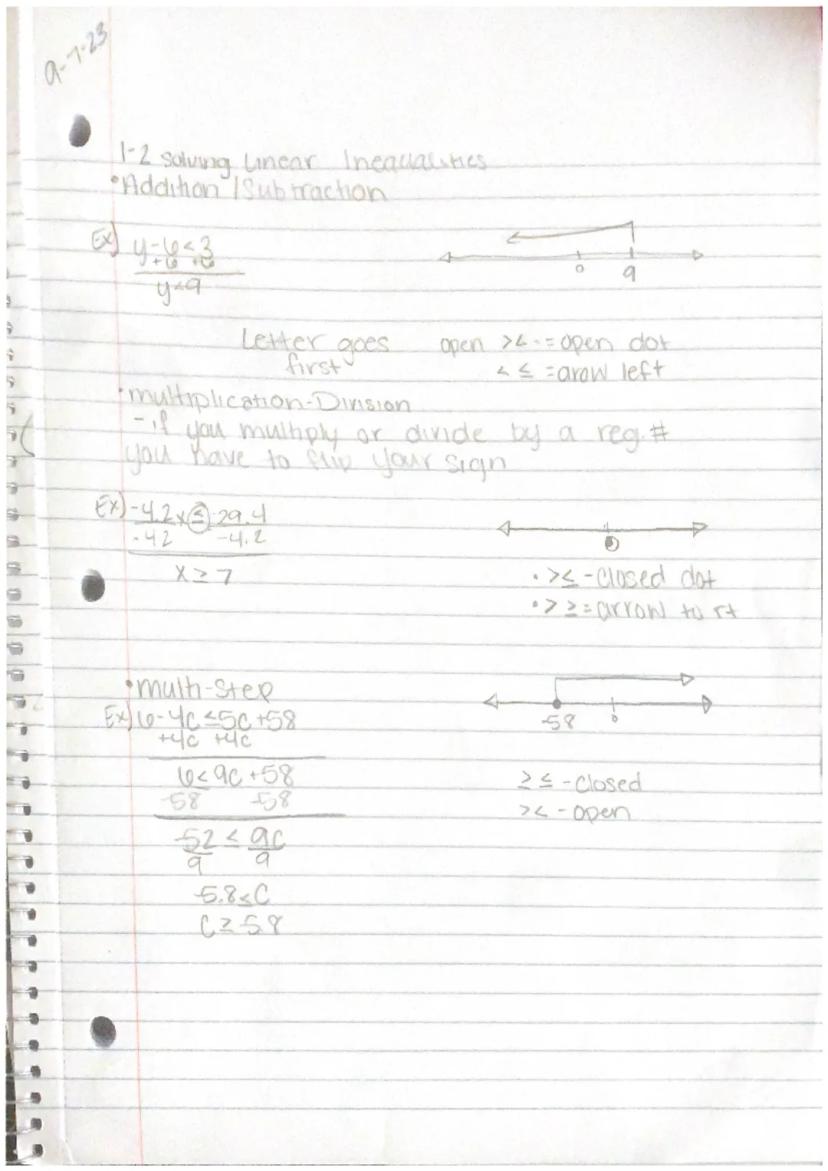 9-7-23
1-2 solving Linear Inequalities
•Addition/Subtraction
Ex) y-6<3
+6 +6
y<9
0 9
Letter goes first
open ><-=open dot
< ≤ =arow left
•multiplication-Division
-if you multiply or divide by a reg.#
you have to flip your sign
Ex) -4.2x≤-29.4
-42 -4.2
x≥7
•>≤-closed dot
•> ≥=arrow to rt
•multi-Step
Ex) 6-4c≤5c+58
+4c +4c
6≤9c+58
-58 -58
-52 ≤ 9c
9 9
-5.8≤C
C≥-5.8
-58 0
≥ ≤ -closed
>< -open